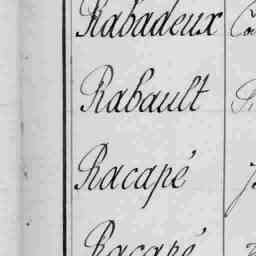 Rabadeux
Rabault
Racapé
Racapé